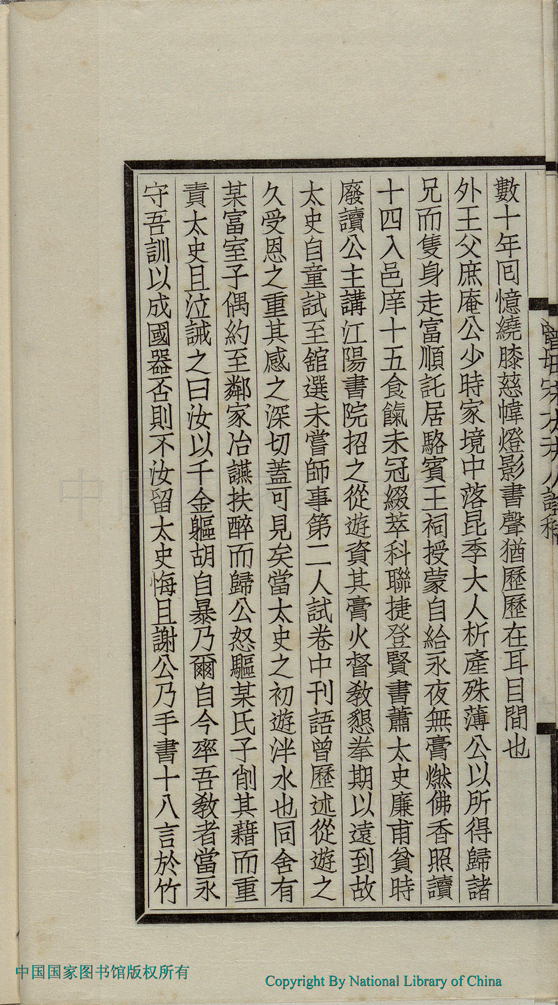 數十年囘憶繞膝慈幃燈影書聲猶歷歷在耳目間也
外王父庶庵公少時家境中落昆季大人析產殊薄公以所得歸諸
兄而隻身走富順託居駱賓王祠授蒙自給永夜無膏燃佛香照讀
十四入邑庠十五食餼未冠綴萃科聯捷登賢書蕭太史廉甫貧時
廢讀公主講江陽書院招之從遊資其膏火督教懇拳期以遠到故
太史自童試至舘選未嘗師事第二人試卷中刊語曾歷述從遊之
久受恩之重其感之深切蓋可見矣當太史之初遊泮水也同舍有
某富室子偶約至鄰家冶讌扶醉而歸公怒驅某氏子削其藉而重
責太史且泣誡之曰汝以千金軀胡自暴乃爾自今率吾教者當永
守吾訓以成國器否則不汝留太史悔且謝公乃手書十八言於竹
中国国家图书馆版权所有
Copyright By National Library of China